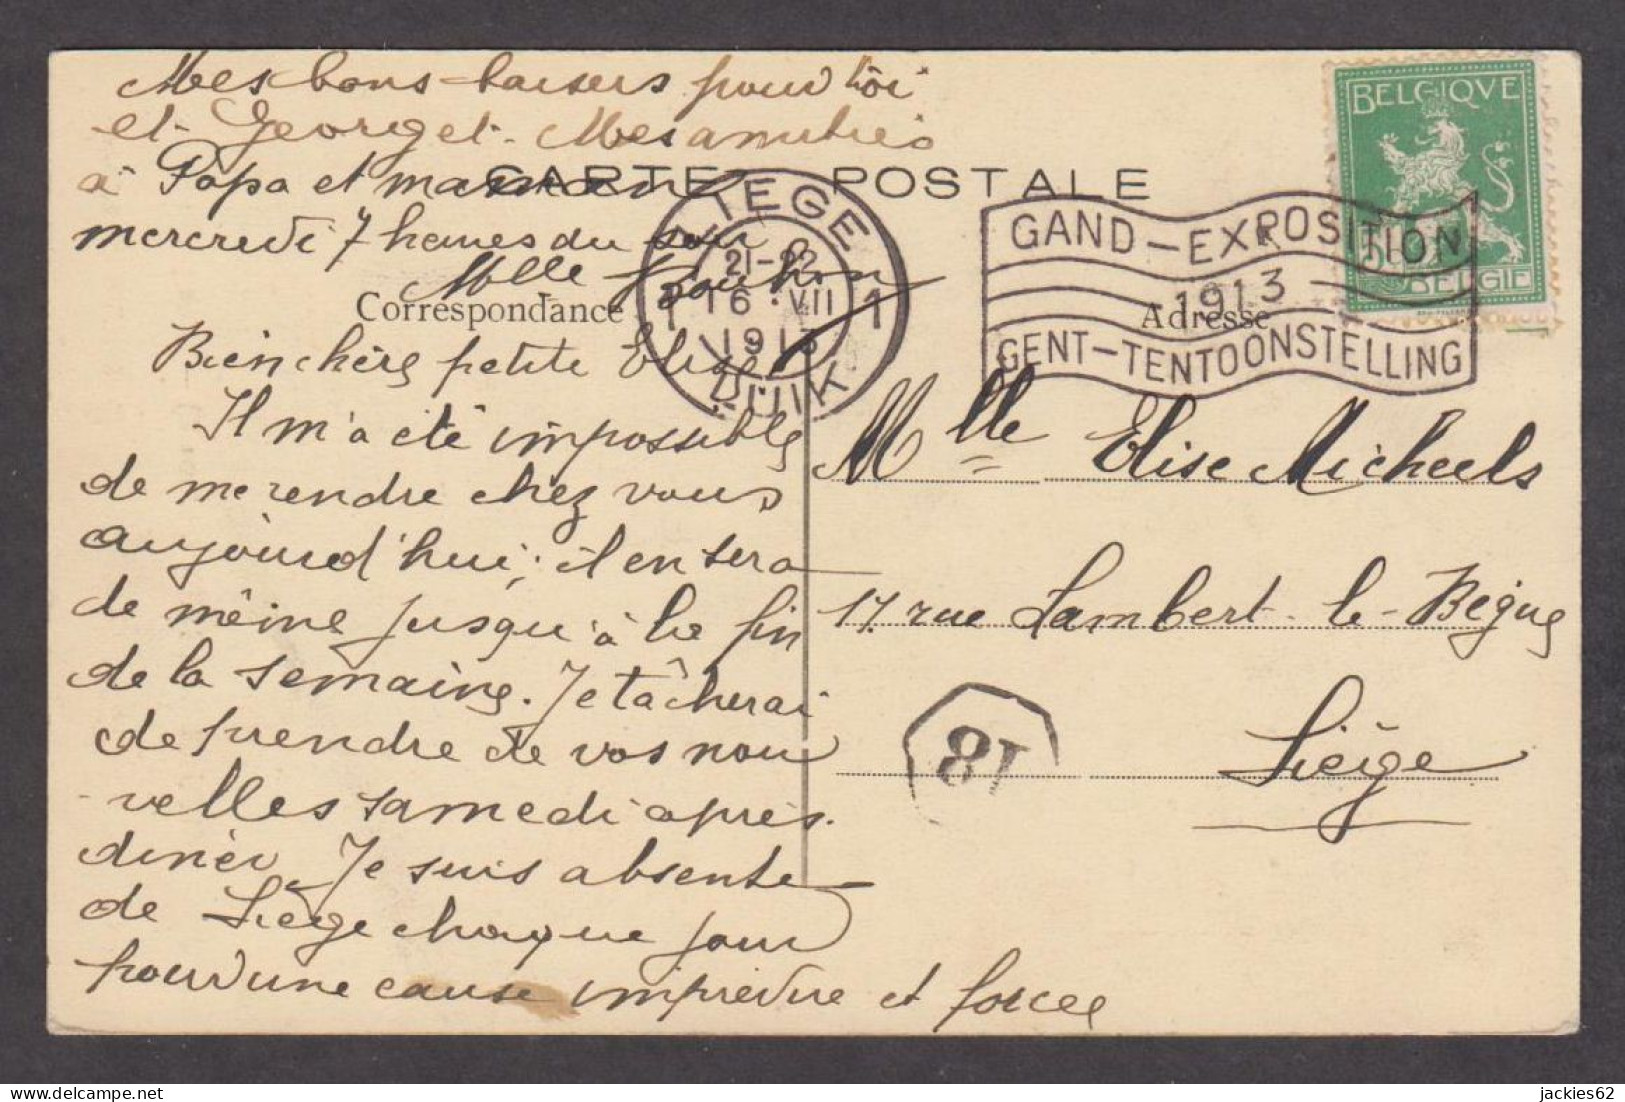 Mes bons baisers pour toi
et Georget. Mes amitiés
à Papa et maman
CARTE POSTALE
mercredi 7 heures du soir
Mlle
Correspondance
Adresse
BELGIQVE
BELGIE
LIEGE
21-22
1 16 VII 1
1913
LUIK
GAND-EXPOSITION
1913
GENT-TENTOONSTELLING
Bien chère petite Elise,
Il m'a été impossible
de me rendre chez vous
aujourd'hui; il en sera
de même jusqu'à la fin
de la semaine. Je tâcherai
de prendre de vos nou
velles samedi après-
dîner. Je suis absente
de Liège chaque jour
pour une cause imprévue et forcée
Mlle Elise Micheels
17. rue Lambert-le-Bègue
Liège
81
jackies62